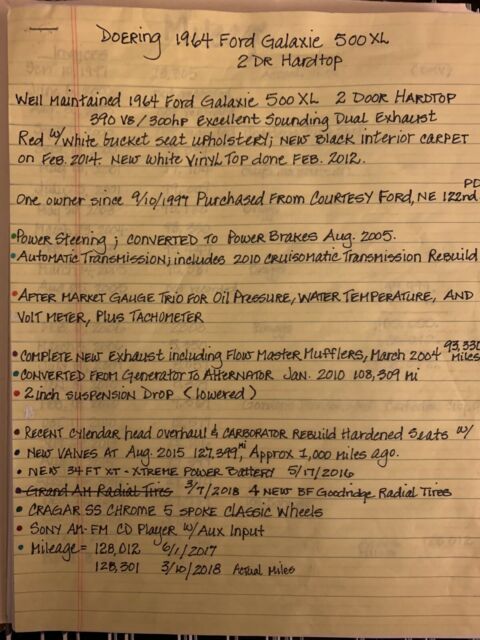 DOERING 1964 FORD GALAXIE 500XL
2 DR HARDTOP
WELL MAINTAINED 1964 FORD GALAXIE 500XL 2 DOOR HARDTOP
390 V8/300hp EXCELLENT SOUNDING DUAL EXHAUST
RED W/WHITE BUCKET SEAT UPHOLSTERY; NEW BLACK INTERIOR CARPET
ON FEB. 2014. NEW WHITE VINYL TOP DONE FEB. 2012.
PD
ONE OWNER SINCE 9/10/1997 PURCHASED FROM COURTESY FORD, NE 122nd
• POWER STEERING; CONVERTED TO POWER BRAKES AUG. 2005.
• AUTOMATIC TRANSMISSION; INCLUDES 2010 CRUISOMATIC TRANSMISSION REBUILD
• AFTER MARKET GAUGE TRIO FOR OIL PRESSURE, WATER TEMPERATURE, AND
VOLT METER, PLUS TACHOMETER
• COMPLETE NEW EXHAUST INCLUDING FLOW MASTER MUFFLERS, MARCH 2004 93,330 MILES
• CONVERTED FROM GENERATOR TO ALTERNATOR JAN. 2010 108,309 mi
• 2 INCH SUSPENSION DROP (LOWERED)
• RECENT CYLENDAR HEAD OVERHAUL & CARBORATOR REBUILD HARDENED SEATS W/
• NEW VALVES AT AUG. 2015 127,399 mi, APPROX 1,000 MILES AGO.
• NEW 34FT XT - XTREME POWER BATTERY 5/17/2016
• GRAND AM RADIAL TIRES 3/7/2018 4 NEW BF GOODRIDGE RADIAL TIRES
• CRAGAR SS CHROME 5 SPOKE CLASSIC WHEELS
• SONY AM-FM CD PLAYER W/AUX INPUT
• MILEAGE = 128,012 6/1/2017
128,301 3/10/2018 ACTUAL MILES